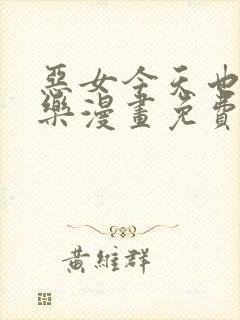 惡女今天也
樂漫畫免費
黃維群